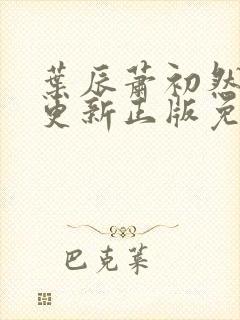 葉辰蕭初然
更新正版免
巴克萊